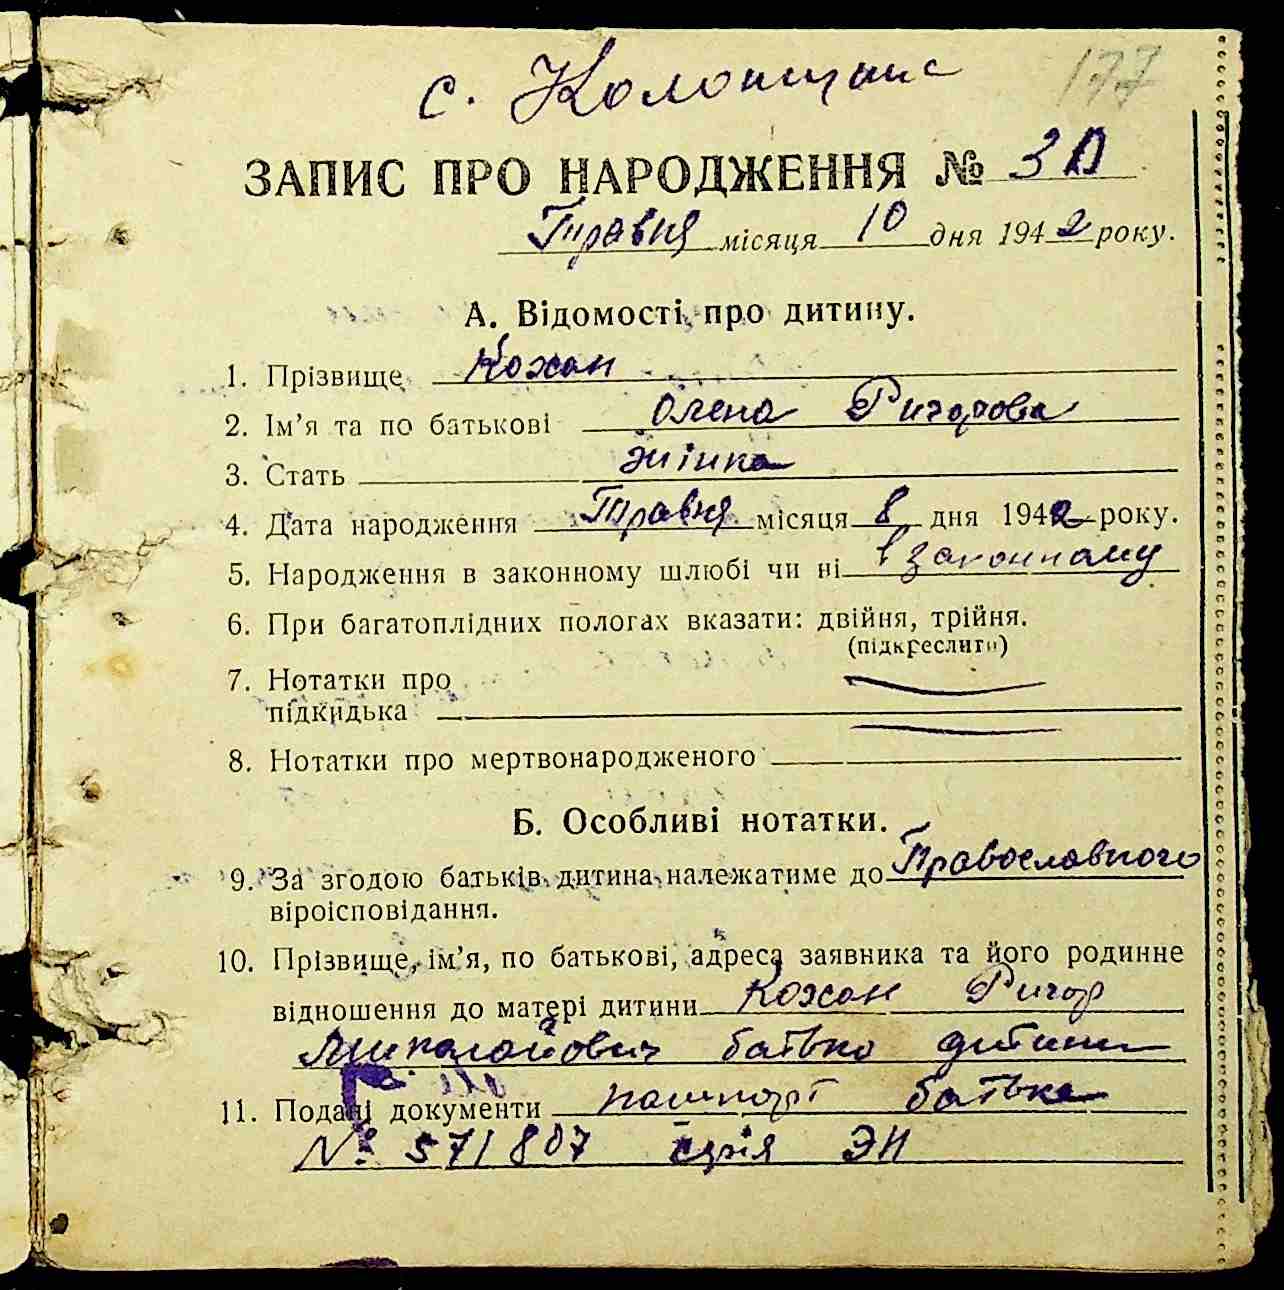 с. Колонщине
177
ЗАПИС ПРО НАРОДЖЕННЯ № 30
Травня місяця 10 дня 1942 року.
А. Відомості про дитину.
1. Прізвище Кохан
2. Ім'я та по батькові Олена Ригорова
3. Стать жінка
4. Дата народження Травня місяця 8 дня 1942 року.
5. Народження в законному шлюбі чи ні в законному
6. При багатоплідних пологах вказати: двійня, трійня.
(підкреслити)
7. Нотатки про
підкидька
8. Нотатки про мертвонародженого
Б. Особливі нотатки.
9. За згодою батьків дитина належатиме до Православного
віроісповідання.
10. Прізвище, ім'я, по батькові, адреса заявника та його родинне
відношення до матері дитини Кохан Ригор
Миколайович батько дитини
11. Подані документи пашпорт батька
№ 571807 серія ЭН